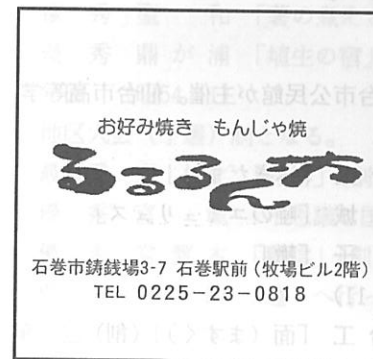 お好み焼き もんじゃ焼
るるるん亭
石巻市鋳銭場3-7 石巻駅前(牧場ビル2階)
TEL 0225-23-0818